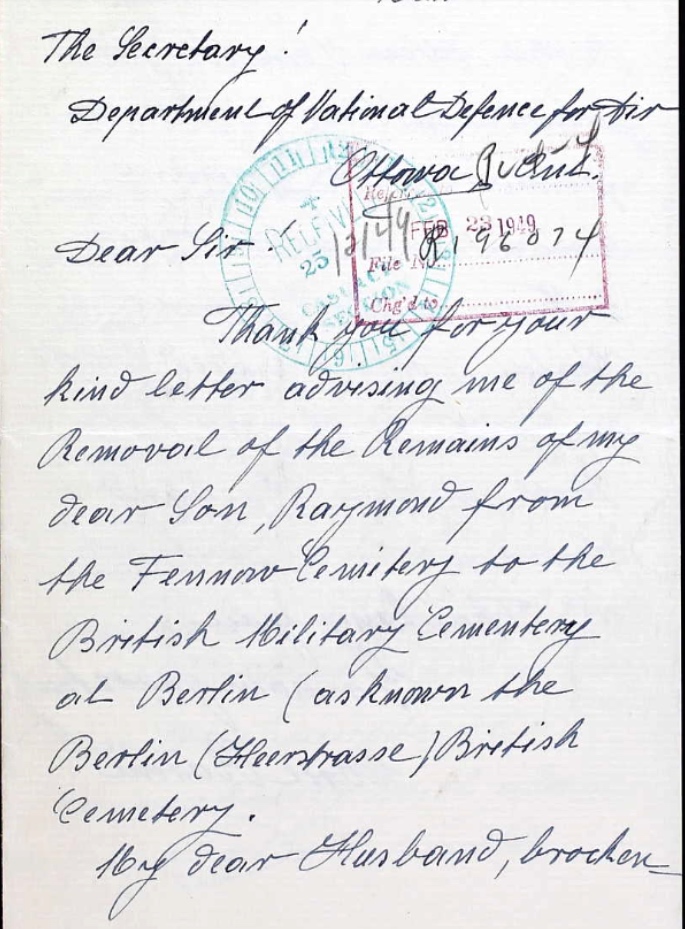 The Secretary!
Department of National Defence for Air
Ottawa
RECEIVED
25
CASUALTY
SECTION
Referred to
FEB 23 1949
File No. R196074
Chg'd to
Dear Sir:-
Thank you for your
kind letter advising me of the
Removal of the Remains of my
dear Son, Raymond from
the Fennow Cemitery to the
British Military Cementery
at Berlin (as known the
Berlin (Heerstrasse) British
Cemetery.
My dear Husband, brocken-